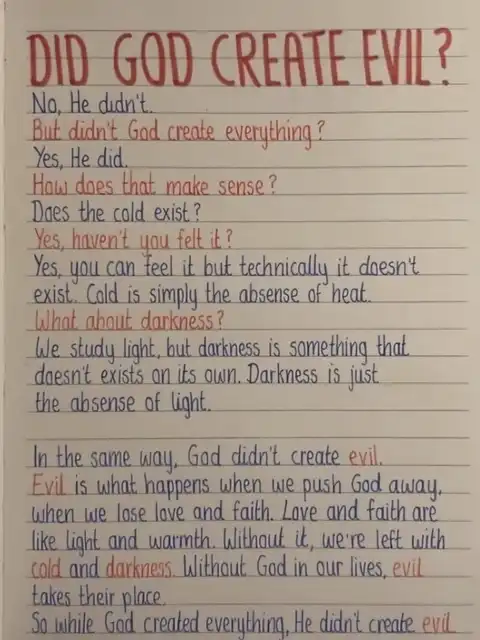 DID GOD CREATE EVIL?
No, He didn't.
But didn't God create everything?
Yes, He did.
How does that make sense?
Does the cold exist?
Yes, haven't you felt it?
Yes, you can feel it but technically it doesn't
exist. Cold is simply the absense of heat.
What about darkness?
We study light, but darkness is something that
doesn't exists on its own. Darkness is just
the absense of light.
In the same way, God didn't create evil.
Evil is what happens when we push God away,
when we lose love and faith. Love and faith are
like light and warmth. Without it, we're left with
cold and darkness. Without God in our lives, evil
takes their place.
So while God created everything, He didn't create evil